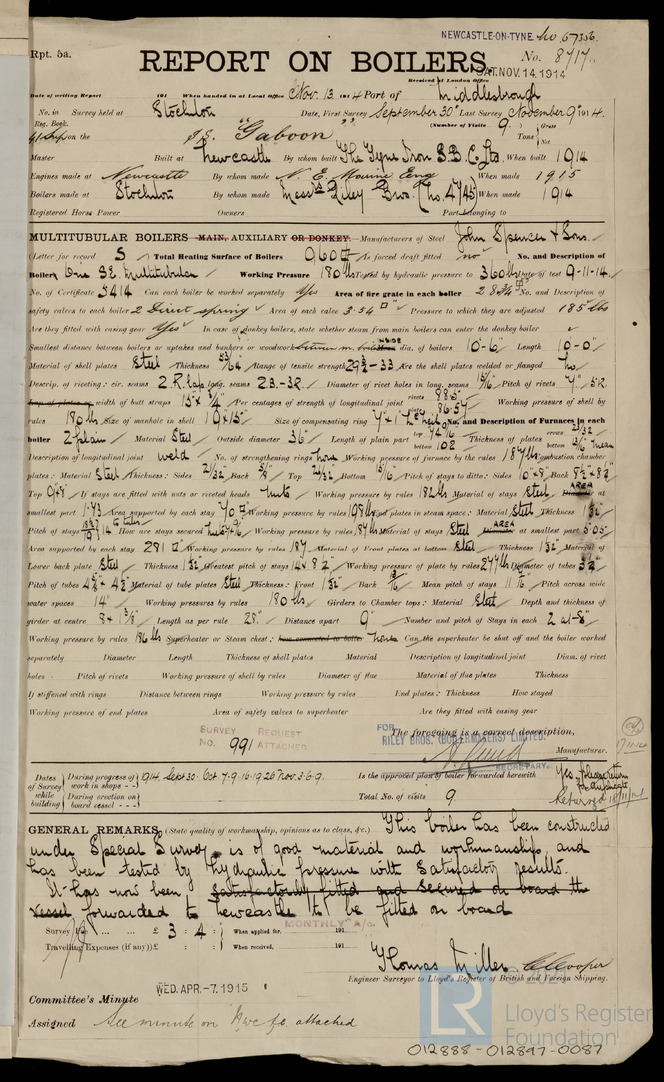 NEWCASTLE-ON-TYNE No 67356
Rpt. 5a.
REPORT ON BOILERS.
No. 8717
Received at London Office SAT. NOV. 14 1914
Date of writing Report 191 When handed in at Local Office Nov. 13. 1914 Port of Middlesbrough
No. in Reg. Book. Survey held at Stockton Date, First Survey September 30th Last Survey November 9th 1914.
(Number of Visits 9.) Gross Net
on the S.S. "Gaboon" Tons
Master Built at Newcastle By whom built The Tyne Iron S.B. Co. Ltd. When built 1914
Engines made at Newcastle By whom made N. E. Marine Eng When made 1915
Boilers made at Stockton By whom made Messrs Riley Bros. (No. 4745) When made 1914
Registered Horse Power Owners Port belonging to
MULTITUBULAR BOILERS MAIN, AUXILIARY OR DONKEY. Manufacturers of Steel John Spencer & Sons.
(Letter for record S) Total Heating Surface of Boilers 960 Is forced draft fitted no No. and Description of
Boilers One S.E. Multitubular Working Pressure 180 lbs Tested by hydraulic pressure to 360 lbs Date of test 9-11-14.
No. of Certificate 5414 Can each boiler be worked separately Yes Area of fire grate in each boiler 28 3/4 No. and Description of
safety valves to each boiler 2 Direct spring Area of each valve 3.54 Pressure to which they are adjusted 185 lbs
Are they fitted with easing gear Yes In case of donkey boilers, state whether steam from main boilers can enter the donkey boiler
Smallest distance between boilers or uptakes and bunkers or woodwork dia. of boilers 10'-6" Length 10'-0"
Material of shell plates Steel Thickness 53/64 Range of tensile strength 29 1/2-33 Are the shell plates welded or flanged No
Descrip. of riveting: cir. seams 2.R.Lap long. seams 2B.-3R. Diameter of rivet holes in long. seams 15/16 Pitch of rivets
width of butt straps Per centages of strength of longitudinal joint rivets 88.5 plate 86.57 Working pressure of shell by
rules 180 lbs Size of manhole in shell 19" x 15" Size of compensating ring No. and Description of Furnaces in each
boiler 2 plain Material Steel Outside diameter 36" Length of plain part top 74 bottom 102 Thickness of plates crown bottom
Description of longitudinal joint weld No. of strengthening rings None Working pressure of furnace by the rules 187 lbs Combustion chamber
plates: Material Steel Thickness: Sides 21/32 Back 5/8 Top 21/32 Bottom 15/16 Pitch of stays to ditto: Sides 10" x 8" Back 8 1/2 x 8 1/2
Top 9 x 8" If stays are fitted with nuts or riveted heads nuts Working pressure by rules 182 lbs Material of stays Steel AREA at
smallest part 1.73 Area supported by each stay 70 Working pressure by rules 198 lbs End plates in steam space: Material Steel Thickness 1 3/32
Pitch of stays How are stays secured Working pressure by rules 187 lbs Material of stays Steel AREA at smallest part 5.05
Area supported by each stay 281 Working pressure by rules 187 Material of Front plates at bottom Steel Thickness 1 3/32 Material of
Lower back plate Steel Thickness 1 3/32 Greatest pitch of stays 14 x 8 1/2 Working pressure of plate by rules 277 lbs Diameter of tubes 3 1/2
Pitch of tubes 4 5/8 x 4 1/2 Material of tube plates Steel Thickness: Front 1 3/32 Back Mean pitch of stays Pitch across wide
water spaces 14" Working pressures by rules 180 lbs Girders to Chamber tops: Material Steel Depth and thickness of
girder at centre 8 x 1 3/8 Length as per rule 28" Distance apart 9" Number and pitch of Stays in each 2 at 8"
Working pressure by rules 186 lbs Superheater or Steam chest: how connected to boiler None Can the superheater be shut off and the boiler worked
separately Diameter Length Thickness of shell plates Material Description of longitudinal joint Diam. of rivet
holes Pitch of rivets Working pressure of shell by rules Diameter of flue Material of flue plates Thickness
If stiffened with rings Distance between rings Working pressure by rules End plates: Thickness How stayed
Working pressure of end plates Area of safety valves to superheater Are they fitted with easing gear
SURVEY REQUEST No. 991 ATTACHED
The foregoing is a correct description,
FOR RILEY BROS. (BOILERMAKERS) LIMITED. Manufacturer.
SECRETARY.
Dates of Survey while building
During progress of work in shops - - 1914. Sept 30. Oct 7.9.16.19.26 Nov 3.6.9.
During erection on board vessel - - -
Is the approved plan of boiler forwarded herewith Yes, please return for duplicate
Total No. of visits 9. Returned 18/11/14
GENERAL REMARKS (State quality of workmanship, opinions as to class, &c.) This boiler has been constructed
under Special Survey, is of good material and workmanship, and
has been tested by hydraulic pressure with satisfactory results.
It has now been satisfactorily fitted and secured on board the
vessel forwarded to Newcastle to be fitted on board
Survey Fee ... ... £ 3 : 4 : When applied for, MONTHLY A/c. 191
Travelling Expenses (if any) £ : : When received, 191
Thomas Miller C. Cooper
Engineer Surveyor to Lloyd's Register of British and Foreign Shipping.
Committee's Minute WED. APR. -7. 1915
Assigned See minute on Nwc fe. attached
LR Lloyd's Register Foundation
012888-012897-0087